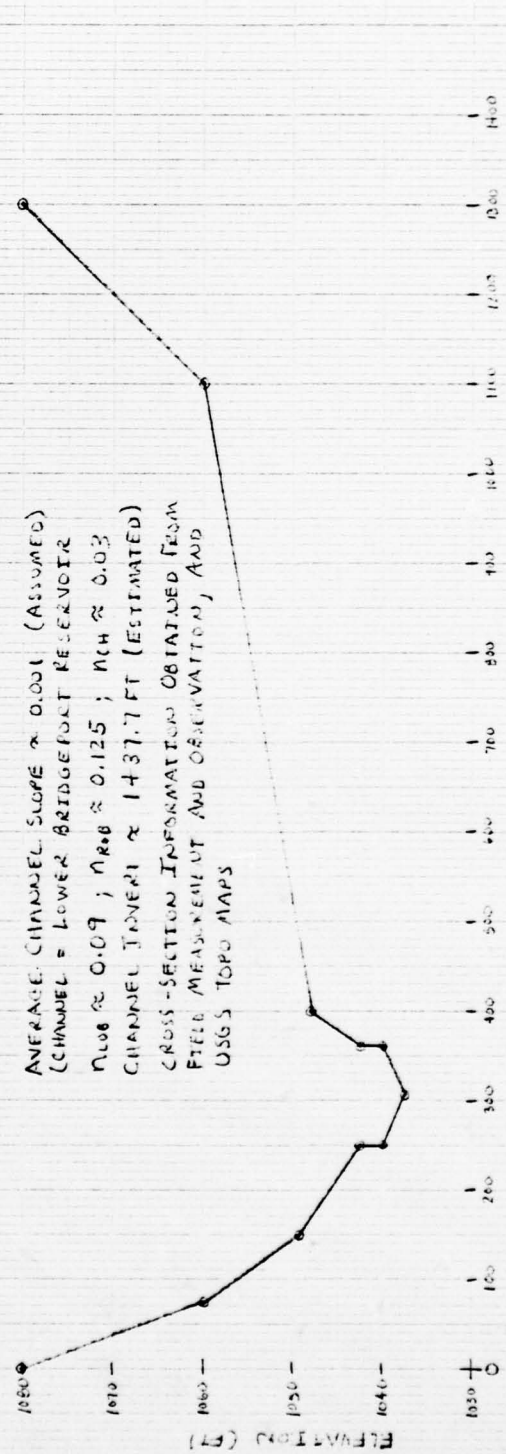 AVERAGE CHANNEL SLOPE ≈ 0.001 (ASSUMED)
(CHANNEL = LOWER BRIDGEPORT RESERVOIR
nLOB ≈ 0.09 ; nROB ≈ 0.125 ; nCH ≈ 0.03
CHANNEL INVERT ≈ 1437.7 FT (ESTIMATED)
CROSS-SECTION INFORMATION OBTAINED FROM
FIELD MEASUREMENT AND OBSERVATION, AND
USGS TOPO MAPS
ELEVATION (FT)
1080
1070
1060
1050
1040
1030
0
100
200
300
400
500
600
700
800
900
1000
1100
1200
1300
1400